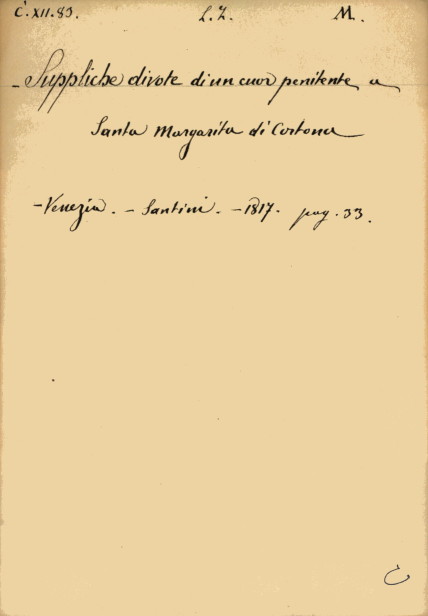 C. XII. 83. L. Z. M.
- Suppliche divote di un cuor penitente a
Santa Margarita di Cortona
- Venezia. - Santini. - 1817. pag. 33.
C